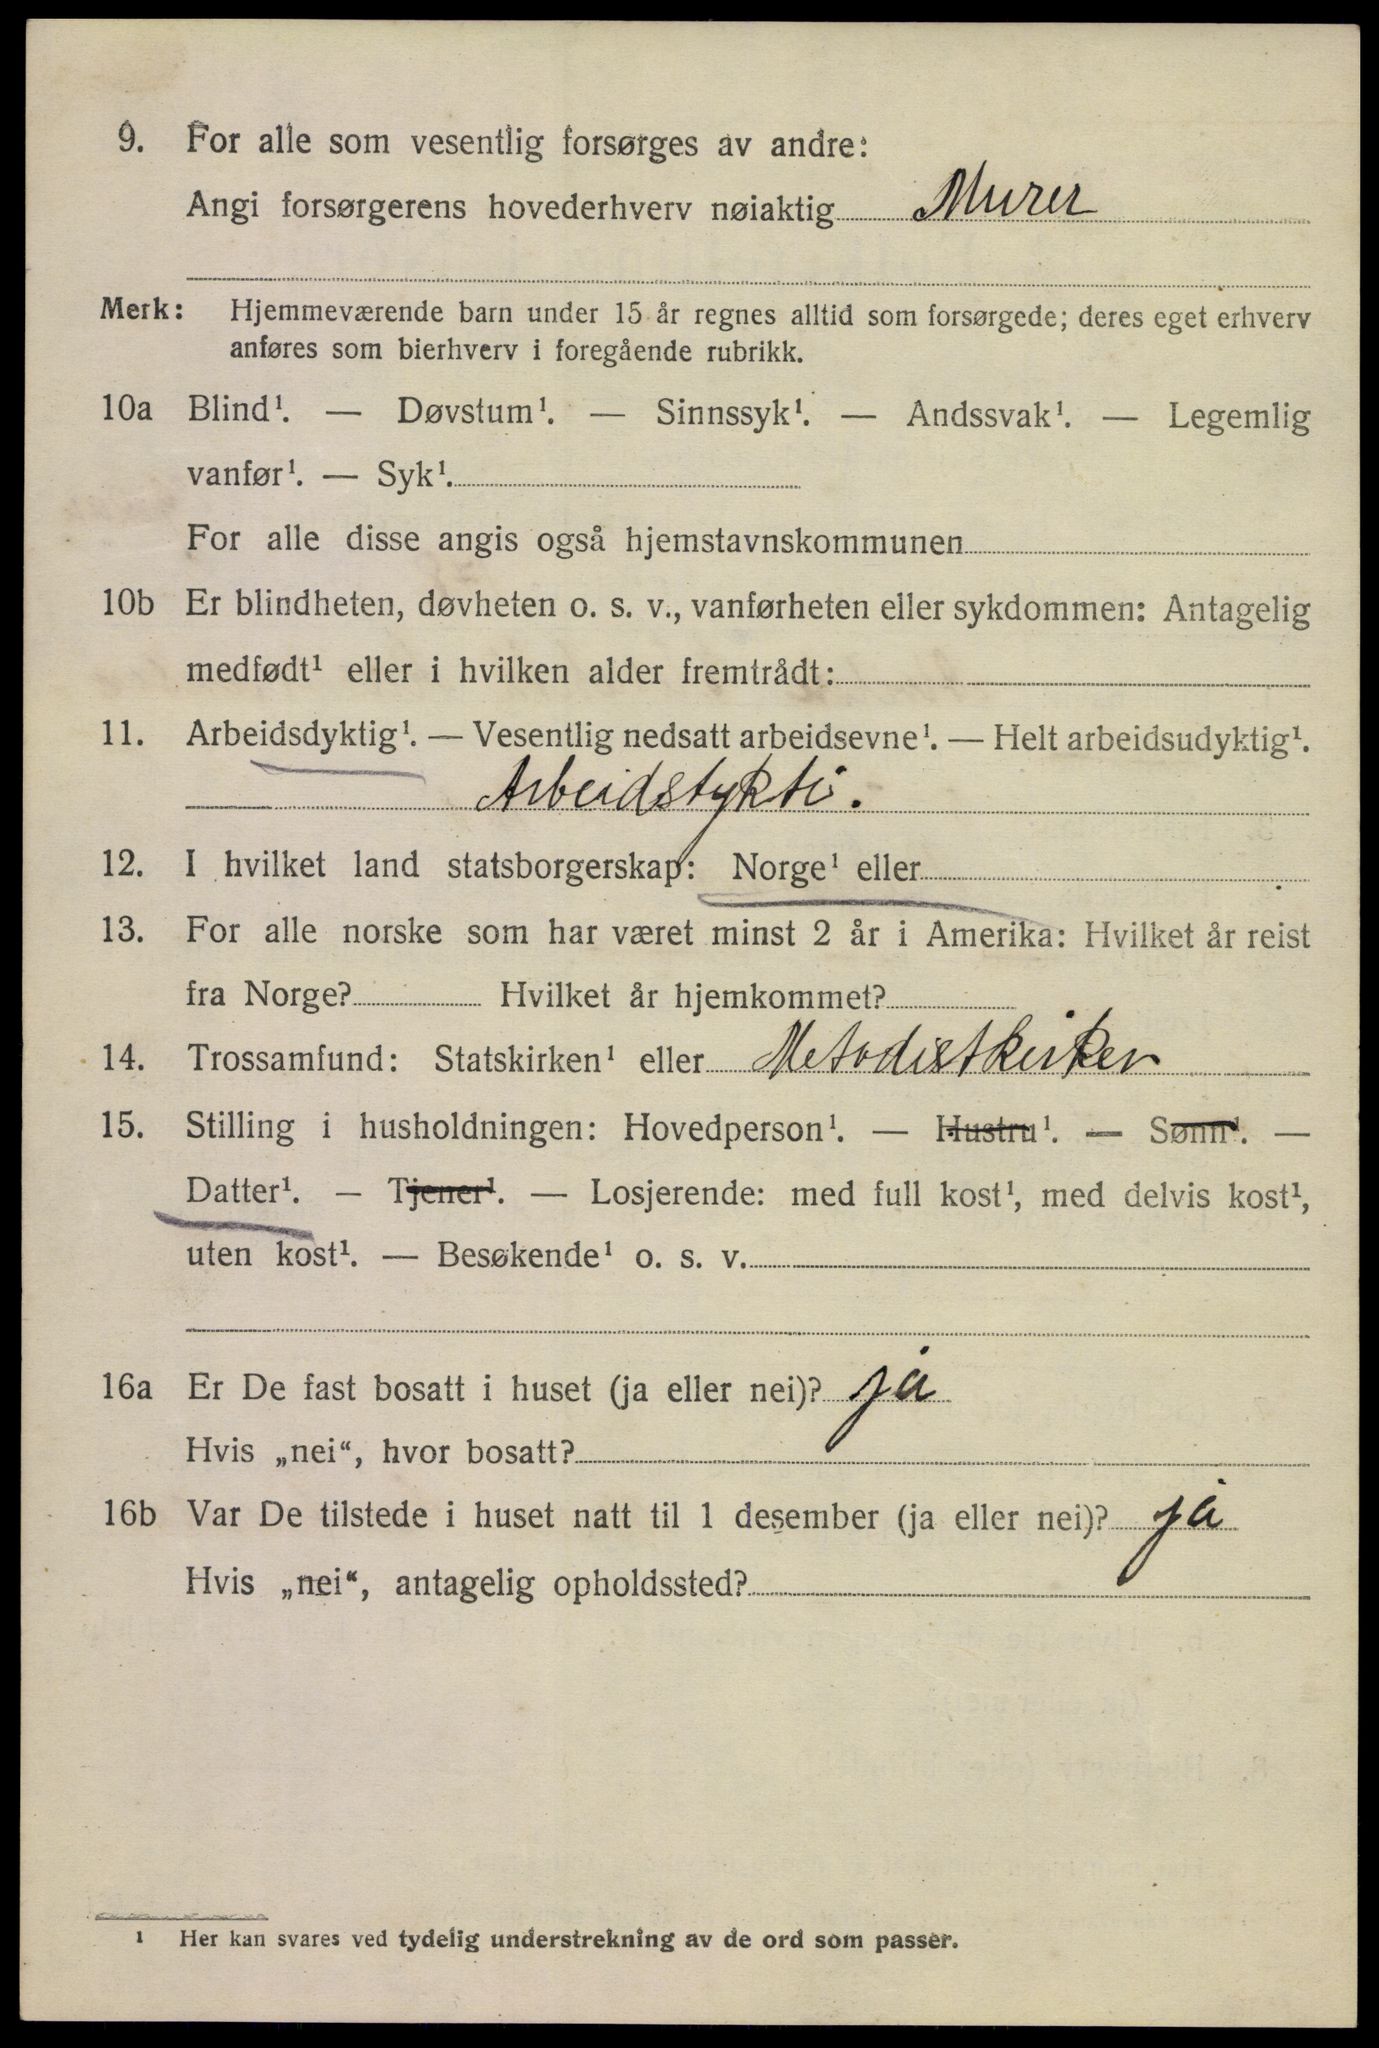 9. For alle som vesentlig forsørges av andre:
Angi forsørgerens hovederhverv nøiaktig Murer
Merk: Hjemmeværende barn under 15 år regnes alltid som forsørgede; deres eget erhverv
anføres som bierhverv i foregående rubrikk.
10a Blind¹. — Døvstum¹. — Sinnssyk¹. — Andssvak¹. — Legemlig
vanfør¹. — Syk¹.
For alle disse angis også hjemstavnskommunen
10b Er blindheten, døvheten o. s. v., vanførheten eller sykdommen: Antagelig
medfødt¹ eller i hvilken alder fremtrådt:
11. Arbeidsdyktig¹. — Vesentlig nedsatt arbeidsevne¹. — Helt arbeidsudyktig¹.
Arbeidstykti.
12. I hvilket land statsborgerskap: Norge¹ eller
13. For alle norske som har været minst 2 år i Amerika: Hvilket år reist
fra Norge? Hvilket år hjemkommet?
14. Trossamfund: Statskirken¹ eller Metodistkirken
15. Stilling i husholdningen: Hovedperson¹. — Hustru¹. — Sønn¹. —
Datter¹. — Tjener¹. — Losjerende: med full kost¹, med delvis kost¹,
uten kost¹. — Besøkende¹ o. s. v.
16a Er De fast bosatt i huset (ja eller nei)? ja
Hvis „nei“, hvor bosatt?
16b Var De tilstede i huset natt til 1 desember (ja eller nei)? ja
Hvis „nei“, antagelig opholdssted?
¹ Her kan svares ved tydelig understrekning av de ord som passer.